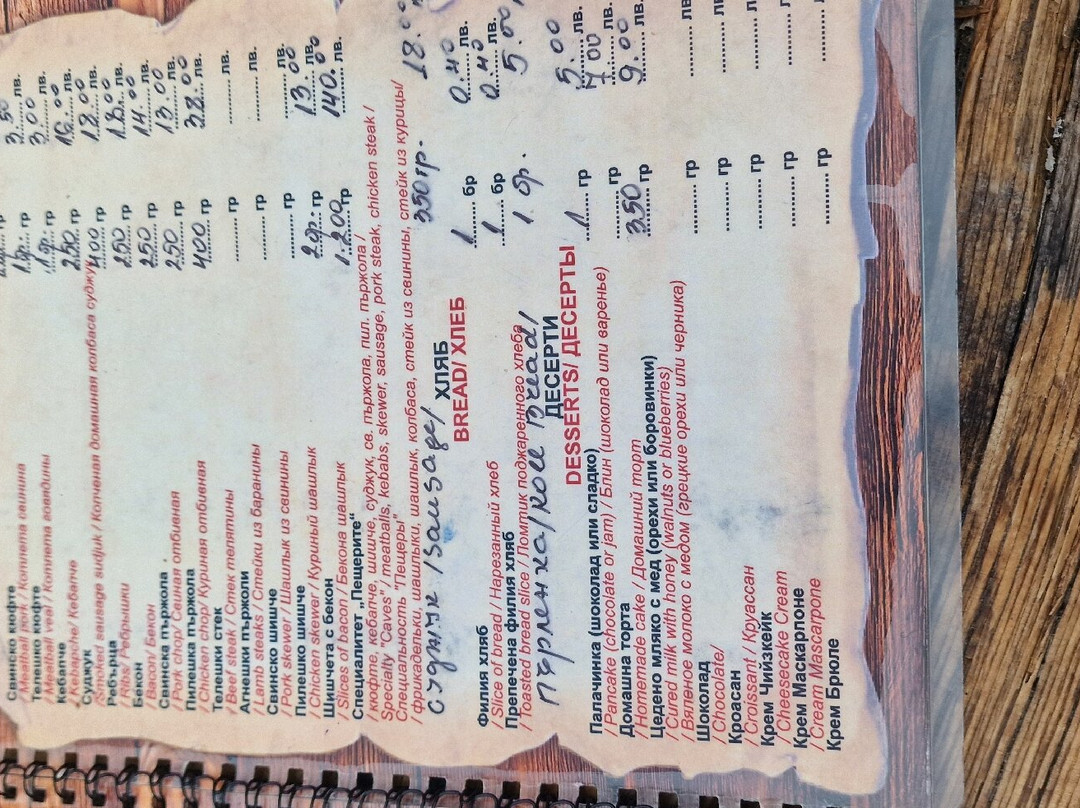 Свинско кюфте
/ Meatball pork / Котлета свинина
Телешко кюфте 1бр. гр 3.50 лв.
/ Meatball veal / Котлета говядины
Кебапче 1бр. гр 3.00 лв.
/ Kebapche/ Кебапче
Суджук 250 гр 16.00 лв.
/ Smoked sausage sudjuk / Копченая домашная колбаса суджук
Ребърца 400 гр 18.00 лв.
/ Ribs/ Ребрышки
Бекон 250 гр 18.00 лв.
/ Bacon/ Бекон
Свинска пържола 250 гр 14.00 лв.
/ Pork chop/ Свиная отбивная
Пилешка пържола 250 гр 13.00 лв.
/ Chicken chop/ Куриная отбивная
Телешки стек 400 гр 38.00 лв.
/ Beef steak / Стек телятины
Агнешки пържоли ........ гр ........ лв.
/ Lamb steaks / Стейки из баранины
Свинско шишче ........ гр ........ лв.
/ Pork skewer / Шашлык из свинины
Пилешко шишче ........ гр ........ лв.
/ Chicken skewer / Куриный шашлык
Шишчета с бекон 2бр. гр 13.00 лв.
/ Slices of bacon / Бекона шашлык
Специалитет „Пещерите“ 1.200 гр 140.00 лв.
/ кюфте, кебапче, шишче, суджук, св. пържола, пил. пържола /
Specialty "Caves" / meatballs, kebabs, skewer, sausage, pork steak, chicken steak /
Специальность "Пещеры"
/ фрикадельки, шашлыки, шашлык, колбаса, стейк из свинины, стейк из курицы/
суджук /sausage/ 350 гр. 18.00
ХЛЯБ
BREAD/ ХЛЕБ
Филия хляб 1 бр 0.40 лв.
/ Slice of bread / Нарезанный хлеб
Препечена филия хляб 1 бр 0.40 лв.
/Toasted bread slice / Ломтик поджаренного хлеба
Пърленка/Roll Bread/ 1 бр. 5.00
ДЕСЕРТИ
DESSERTS/ ДЕСЕРТЫ
Палачинка (шоколад или сладко) 1 гр 5.00 лв.
/ Pancake (chocolate or jam) / Блин (шоколад или варенье)
Домашна торта ........ гр 7.00 лв.
/ Homemade cake / Домашний торт
Цедено мляко с мед (орехи или боровинки) 350 гр 9.00 лв.
/ Cured milk with honey (walnuts or blueberries)
/ Вяленое молоко с медом (грецкие орехи или черника)
Шоколад ........ гр ........ лв.
/ Chocolate/
Кроасан ........ гр ........ лв.
/ Croissant / Круассан
Крем Чийзкейк ........ гр ........ лв.
/ Cheesecake Cream
Крем Маскарпоне ........ гр
/ Cream Mascarpone
Крем Брюле ........ гр ........ лв.